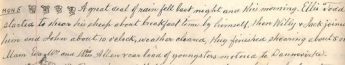 A great deal of rain fell last night and this morning. Ellis Todd
started to shear his sheep about breakfast time by himself, then Wiley & Jack joined
him and John about 10 o'clock, weather cleared, they finished shearing about 5
Mam and Mrs. Aiken rear load of youngsters motored to